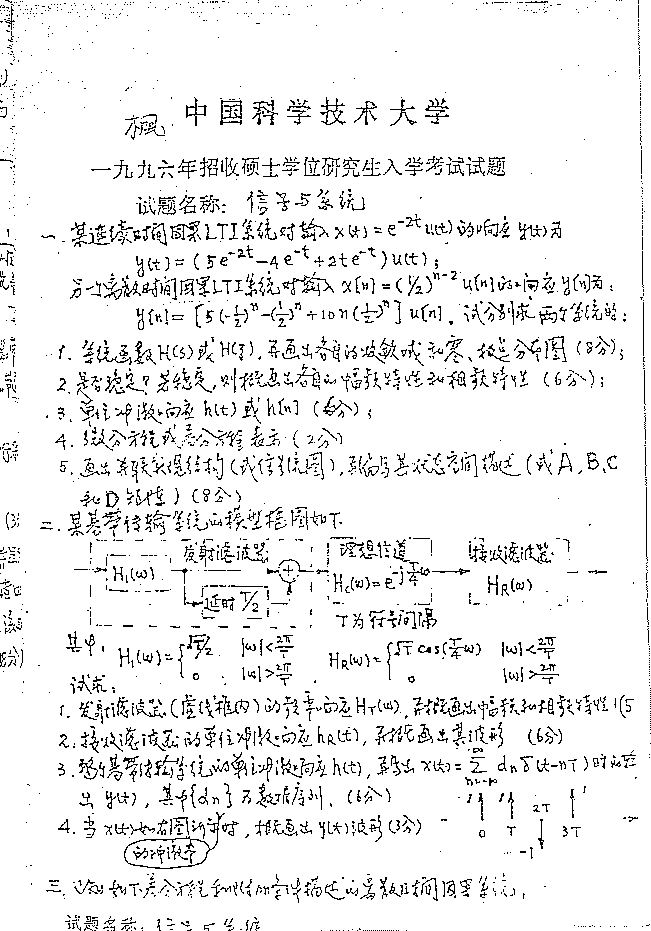 中国科学技术大学
枫
一九九六年招收硕士学位研究生入学考试试题
试题名称: 信号与系统
一. 某连续时间因果LTI系统对输入 x(t)=e^{-2t}u(t) 的响应 y(t)为
y(t)=(5e^{-2t}-4e^{-t}+2te^{-t})u(t);
另一个离散时间因果LTI系统对输入 x[n]=(1/2)^{n-2}u[n]的响应 y[n]为:
y[n]=[5(-1/2)^n-(1/2)^n+10n(1/2)^n]u[n]. 试分别求两个系统的:
1. 系统函数H(s)或H(z), 并画出各自的收敛域和零、极点分布图 (8分);
2. 是否稳定? 若稳定, 则概画出各自的幅频特性和相频特性 (6分);
3. 单位冲激响应 h(t) 或 h[n] (6分);
4. 微分方程或差分方程表示 (2分)
5. 画出并联实现结构(或信号流图), 并写其状态空间描述 (或A、B、C
和D矩阵) (8分)
二. 某基带传输系统的模型框图如下
发射滤波器 理想信道 接收滤波器
H₁(ω) + Hc(ω)= H_R(ω)
延时 T/2
T为符号间隔
其中: H₁(ω)={√T/2 |ω|<2π/T H_R(ω)={√T cos(T/4 ω) |ω|<2π/T
0 |ω|>2π/T 0 |ω|>2π/T
试求:
1. 发射滤波器(虚线框内)的频率响应H_T(ω), 并概画出幅频和相频特性 (5
2. 接收滤波器的单位冲激响应 h_R(t), 并概画出其波形 (6分)
3. 整个基带传输系统的单位冲激响应 h(t), 并写出 x(t)=∑_{n=-∞}^{∞} d_nδ(t-nT) 时的输
出 y(t), 其中{d_n}为数据序列. (6分)
4. 当 x(t)如右图所示的冲激串时, 概画出 y(t)波形 (3分)
1 1 2T 1
0 T 3T
-1
三. 已知如下差分方程和 条件描述的离散时间因果系统,
试题名称: 信号与系统